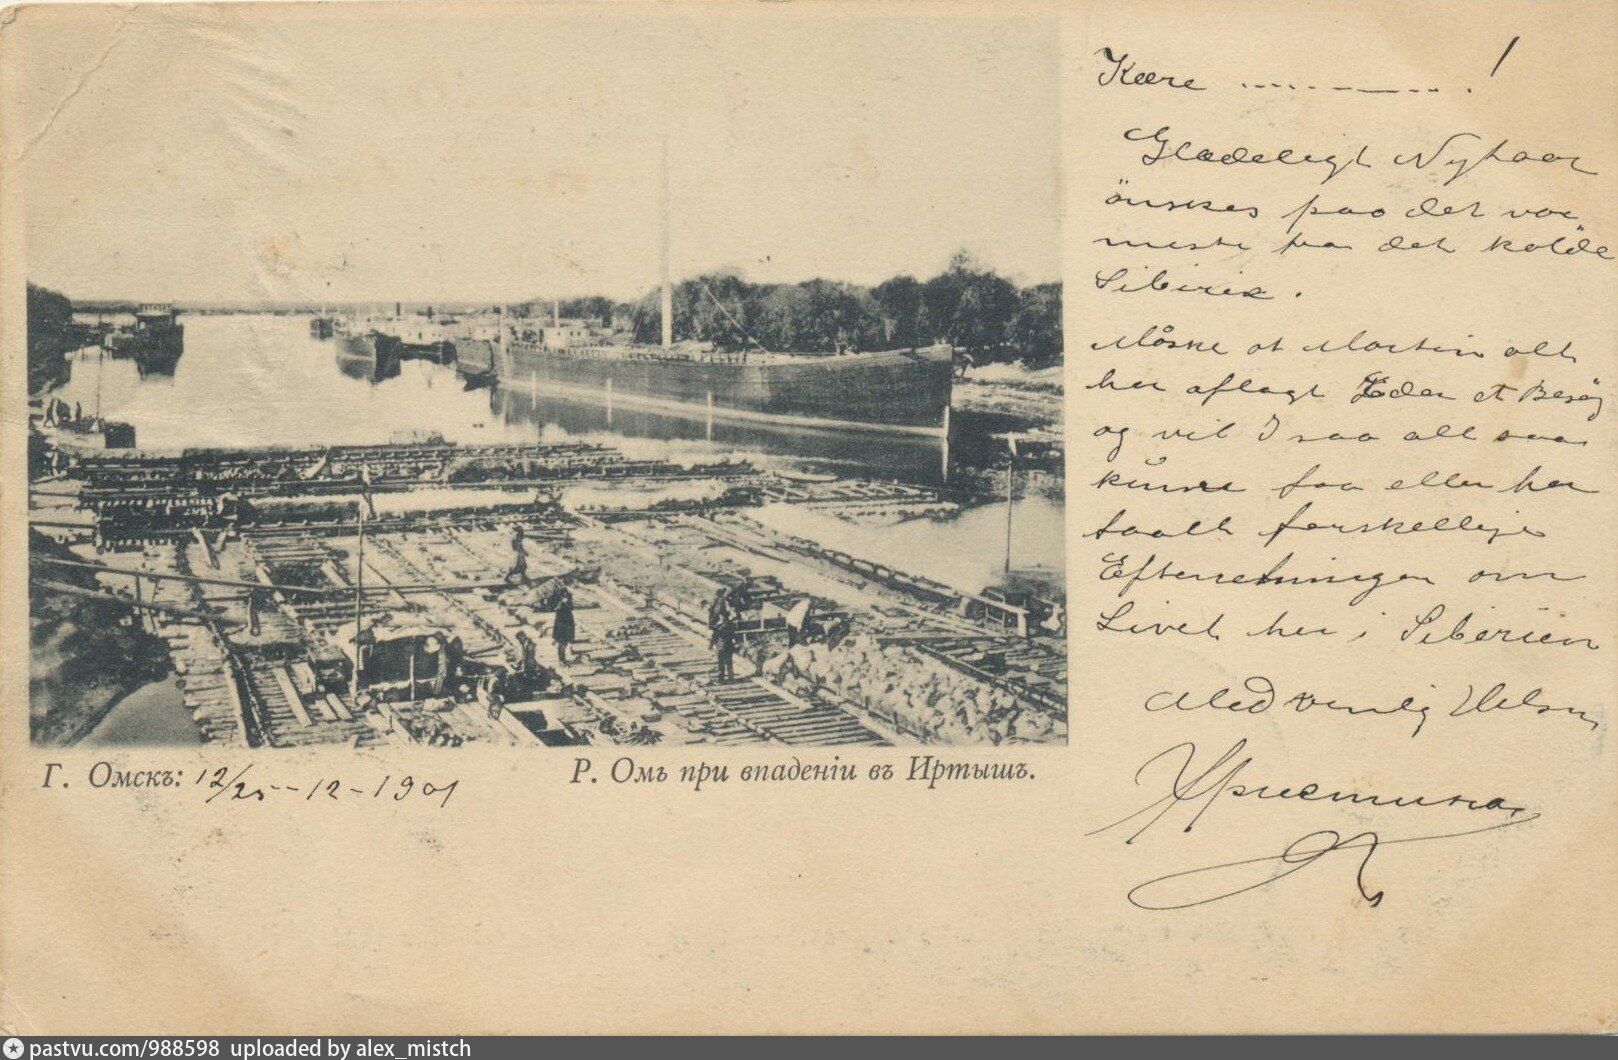 Kære ............!
Glædeligt Nytaar
önskes paa det var
meste fra det kolde
Sibirien.
Måske at Martin alt
har aflagt Eder et Besög
og vil I saa alt saa
kunne faa eller har
faalt forskellige
Efterretninger om
Livet her i Siberien
Med venlig Hilsen
Христина
Г. Омскъ: 12/25-12-1901
Р. Омь при впаденіи въ Иртышъ.
pastvu.com/988598 uploaded by alex_mistch